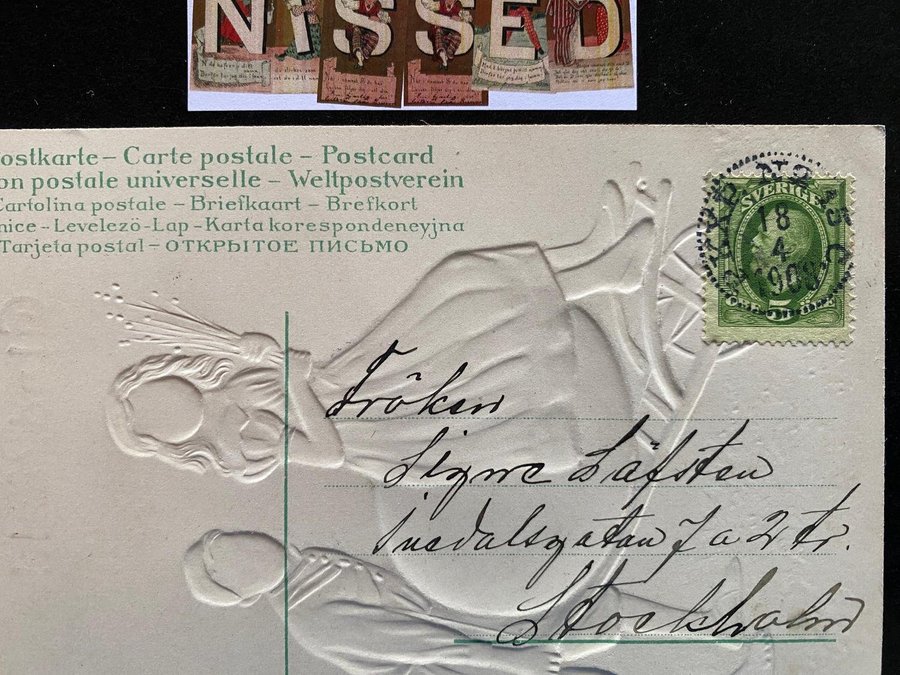 NISSED
ostkarte – Carte postale – Postcard
on postale universelle – Weltpostverein
Cartolina postale – Briefkaart – Brefkort
nice – Levelező-Lap – Karta korespondeneyjna
Tarjeta postal – ОТКРЫТОЕ ПИСЬМО
SVERIGE
18
4
1908
5
Fröken
Signe Läfsten
Inedalsgatan 7 a 2 tr.
Stockholm